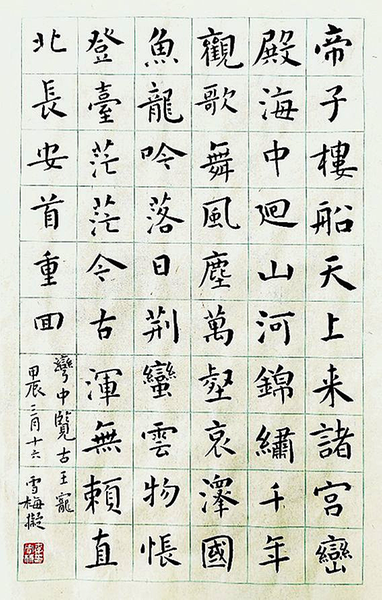 帝子樓船天上来諸宮巒
殿海中廻山河錦繡千年
觀歌舞風塵萬壑哀澤國
魚龍吟落日荆蠻雲物悵
登臺茫茫今古渾無賴直
北長安首重回
彎中覽古王寵
甲辰三月十六 雪梅擬